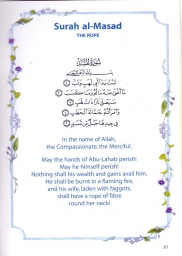 Surah al-Masad
THE ROPE
سُورَةُ المَسَد
بِسْمِ اللَّهِ الرَّحْمَٰنِ الرَّحِيمِ
تَبَّتْ يَدَا أَبِي لَهَبٍ وَتَبَّ
مَا أَغْنَىٰ عَنْهُ مَالُهُ وَمَا كَسَبَ
سَيَصْلَىٰ نَارًا ذَاتَ لَهَبٍ
وَامْرَأَتُهُ حَمَّالَةَ الْحَطَبِ
فِي جِيدِهَا حَبْلٌ مِّن مَّسَدٍ
In the name of Allah,
the Compassionate, the Merciful.
May the hands of Abu-Lahab perish!
May he himself perish!
Nothing shall his wealth and gains avail him.
He shall be burnt in a flaming fire,
and his wife, laden with faggots,
shall have a rope of fibre
round her neck!